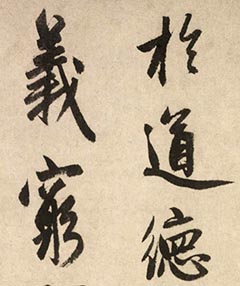 於道德
義窮